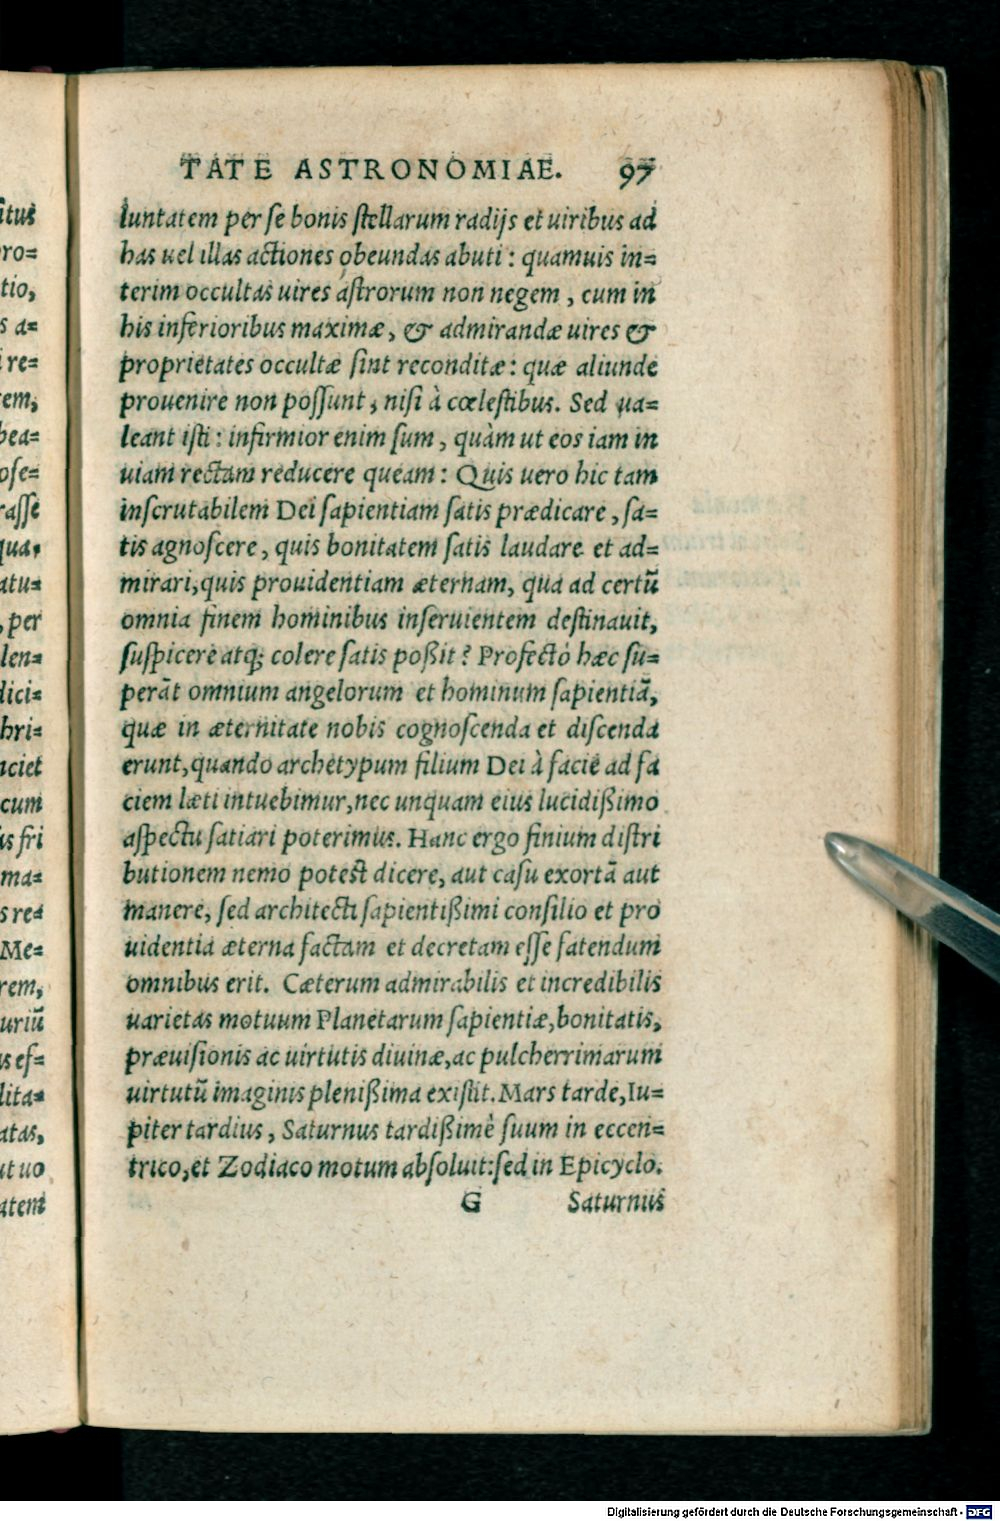 TATE ASTRONOMIAE. 97
luntatem per se bonis stellarum radijs et uiribus ad
has uel illas actiones obeundas abuti: quamuis in=
terim occultas uires astrorum non negem, cum in
his inferioribus maximæ, & admirandæ uires &
proprietates occultæ sint reconditæ: quæ aliunde
prouenire non possunt, nisi à cœlestibus. Sed ua=
leant isti: infirmior enim sum, quàm ut eos iam in
uiam rectam reducere queam: Quis uero hic tam
inscrutabilem Dei sapientiam satis prædicare, sa=
tis agnoscere, quis bonitatem satis laudare et ad=
mirari, quis prouidentiam æternam, qua ad certũ
omnia finem hominibus inseruientem destinauit,
suspicere atq; colere satis poßit? Profectò hæc su=
perãt omnium angelorum et hominum sapientiã,
quæ in æternitate nobis cognoscenda et discenda
erunt, quando archetypum filium Dei à facie ad fa
ciem læti intuebimur, nec unquam eius lucidißimo
aspectu satiari poterimus. Hanc ergo finium distri
butionem nemo potest dicere, aut casu exortã aut
manere, sed architecti sapientißimi consilio et pro
uidentia æterna factam et decretam esse fatendum
omnibus erit. Cæterum admirabilis et incredibilis
uarietas motuum Planetarum sapientiæ, bonitatis,
præuisionis ac uirtutis diuinæ, ac pulcherrimarum
uirtutũ imaginis plenißima existit. Mars tarde, Iu=
piter tardius, Saturnus tardißimè suum in eccen=
trico, et Zodiaco motum absoluit: sed in Epicyclo.
G Saturnus
itus
ro=
tio,
s a=
re=
em,
bea=
ose=
rasse
qua,
atu=
, per
len=
dici=
bri=
nciet
cum
is fri
ma=
s re=
Me=
rem,
uriũ
us ef=
lita=
atas,
ut uo
atem
Digitalisierung gefördert durch die Deutsche Forschungsgemeinschaft - DFG